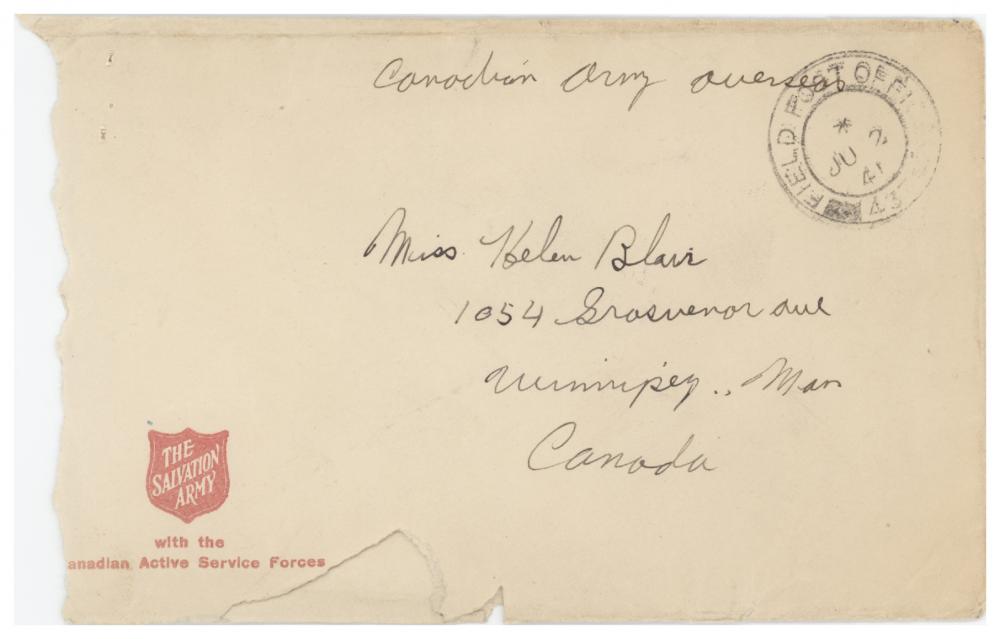 Canadian Army overseas
FIELD POST OFFIC
* 2
JU
41
43
Miss Helen Blair
1054 Grosvenor ave
Winnipeg., Man
Canada
THE
SALVATION
ARMY
with the
anadian Active Service Forces